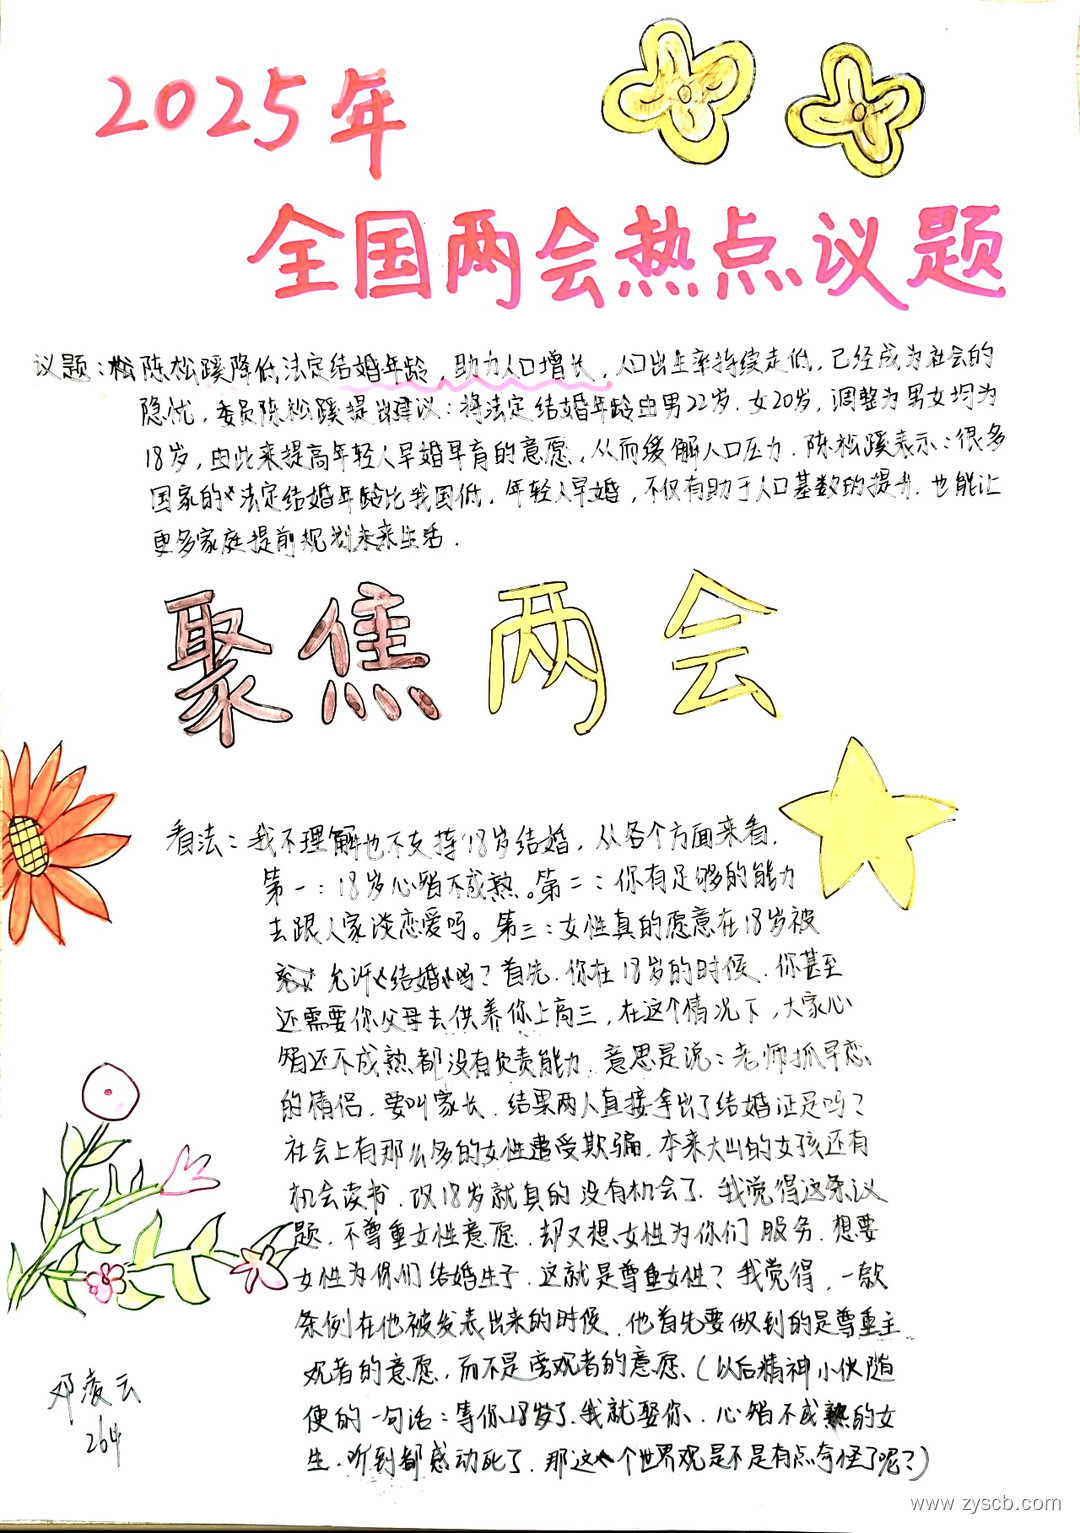 2025年
全国两会热点议题
议题：松陈松蹊降低法定结婚年龄，助力人口增长，人口出生率持续走低，已经成为社会的
隐忧，委员陈松蹊提出建议：将法定结婚年龄由男22岁，女20岁，调整为男女均为
18岁，由此来提高年轻人早婚早育的意愿，从而缓解人口压力，陈松蹊表示：很多
国家的法定结婚年龄比我国低，年轻人早婚，不仅有助于人口基数的提升，也能让
更多家庭提前规划未来生活.
聚焦两会
看法：我不理解也不支持18岁结婚，从各个方面来看，
第一：18岁心智不成熟。第二：你有足够的能力
去跟人家谈恋爱吗。第三：女性真的愿意在18岁被
允许结婚吗？首先，你在18岁的时候，你甚至
还需要你父母去供养你上高三，在这个情况下，大家心
智还不成熟都没有负责能力，意思是说：老师抓早恋
的情侣，要叫家长，结果两人直接拿出了结婚证是吗？
社会上有那么多的女性遭受欺骗，本来大山的女孩还有
机会读书，改18岁就真的没有机会了，我觉得这条议
题，不尊重女性意愿，却又想女性为你们服务，想要
女性为你们结婚生子，这就是尊重女性？我觉得，一款
条例在他被发表出来的时候，他首先要做到的是尊重主
观者的意愿，而不是旁观者的意愿、(以后精神小伙随
便的一句话：等你18岁了，我就娶你，心智不成熟的女
生，听到都感动死了，那这个世界观是不是有点奇怪了呢？)
邓凌云
264
www.zyscb.com